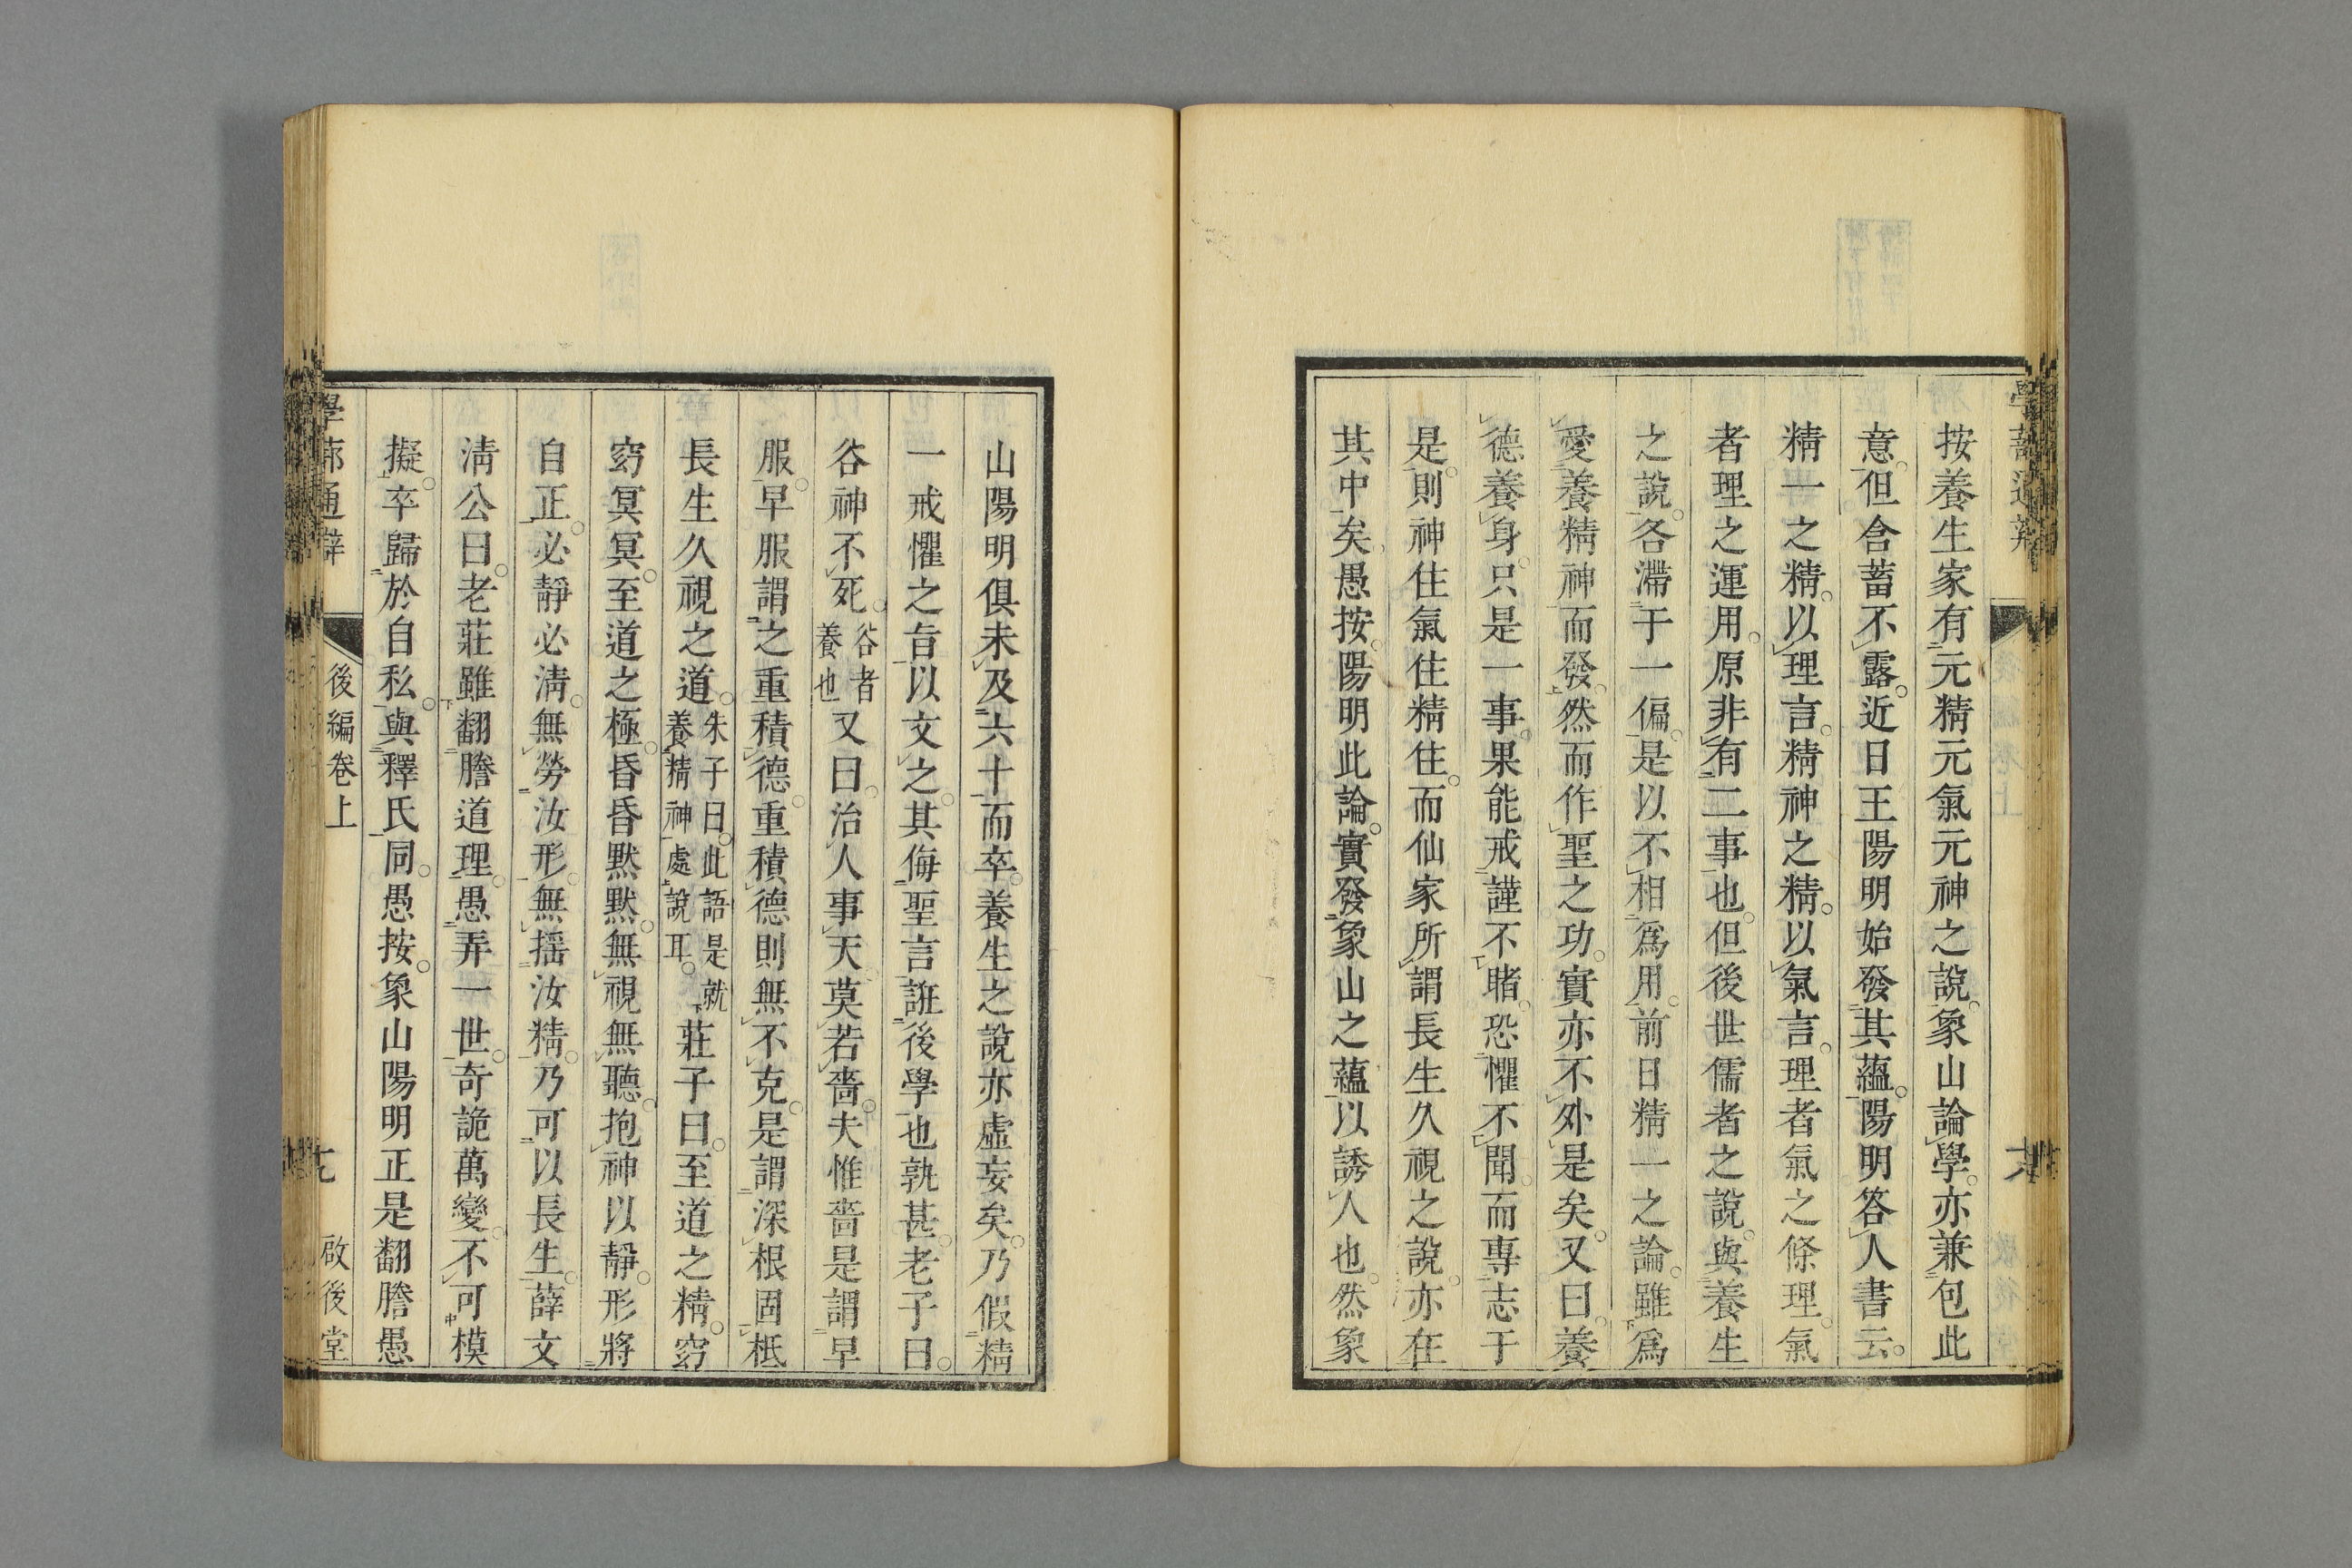 按養生家有元精元氣元神之說象山論學亦兼包此
意但含蓄不露近日王陽明始發其蘊陽明答人書云
精一之精以理言精神之精以氣言理者氣之條理氣
者理之運用原非有二事也但後世儒者之說與養生
之說各滯于一偏是以不相爲用前日精一之論雖爲
愛養精神而發然而作聖之功實亦不外是矣又曰養
德養身只是一事果能戒謹不睹恐懼不聞而專志于
是則神住氣住精住而仙家所謂長生久視之說亦在
其中矣愚按陽明此論實發象山之蘊以誘人也然象
山陽明俱未及六十而卒養生之說亦虛妄矣乃假精
一戒懼之旨以文之其侮聖言誑後學也孰甚老子曰
谷神不死谷者養也又曰治人事天莫若嗇夫惟嗇是謂早
服早服謂之重積德重積德則無不克是謂深根固柢
長生久視之道朱子曰此語是就養精神處說耳莊子曰至道之精窈
窈冥冥至道之極昏昏默默無視無聽抱神以靜形將
自正必靜必淸無勞汝形無搖汝精乃可以長生薛文
淸公曰老莊雖翻謄道理愚弄一世奇詭萬變不可模
擬卒歸於自私與釋氏同愚按象山陽明正是翻謄愚
學蔀通辯 後編卷上 啟後堂